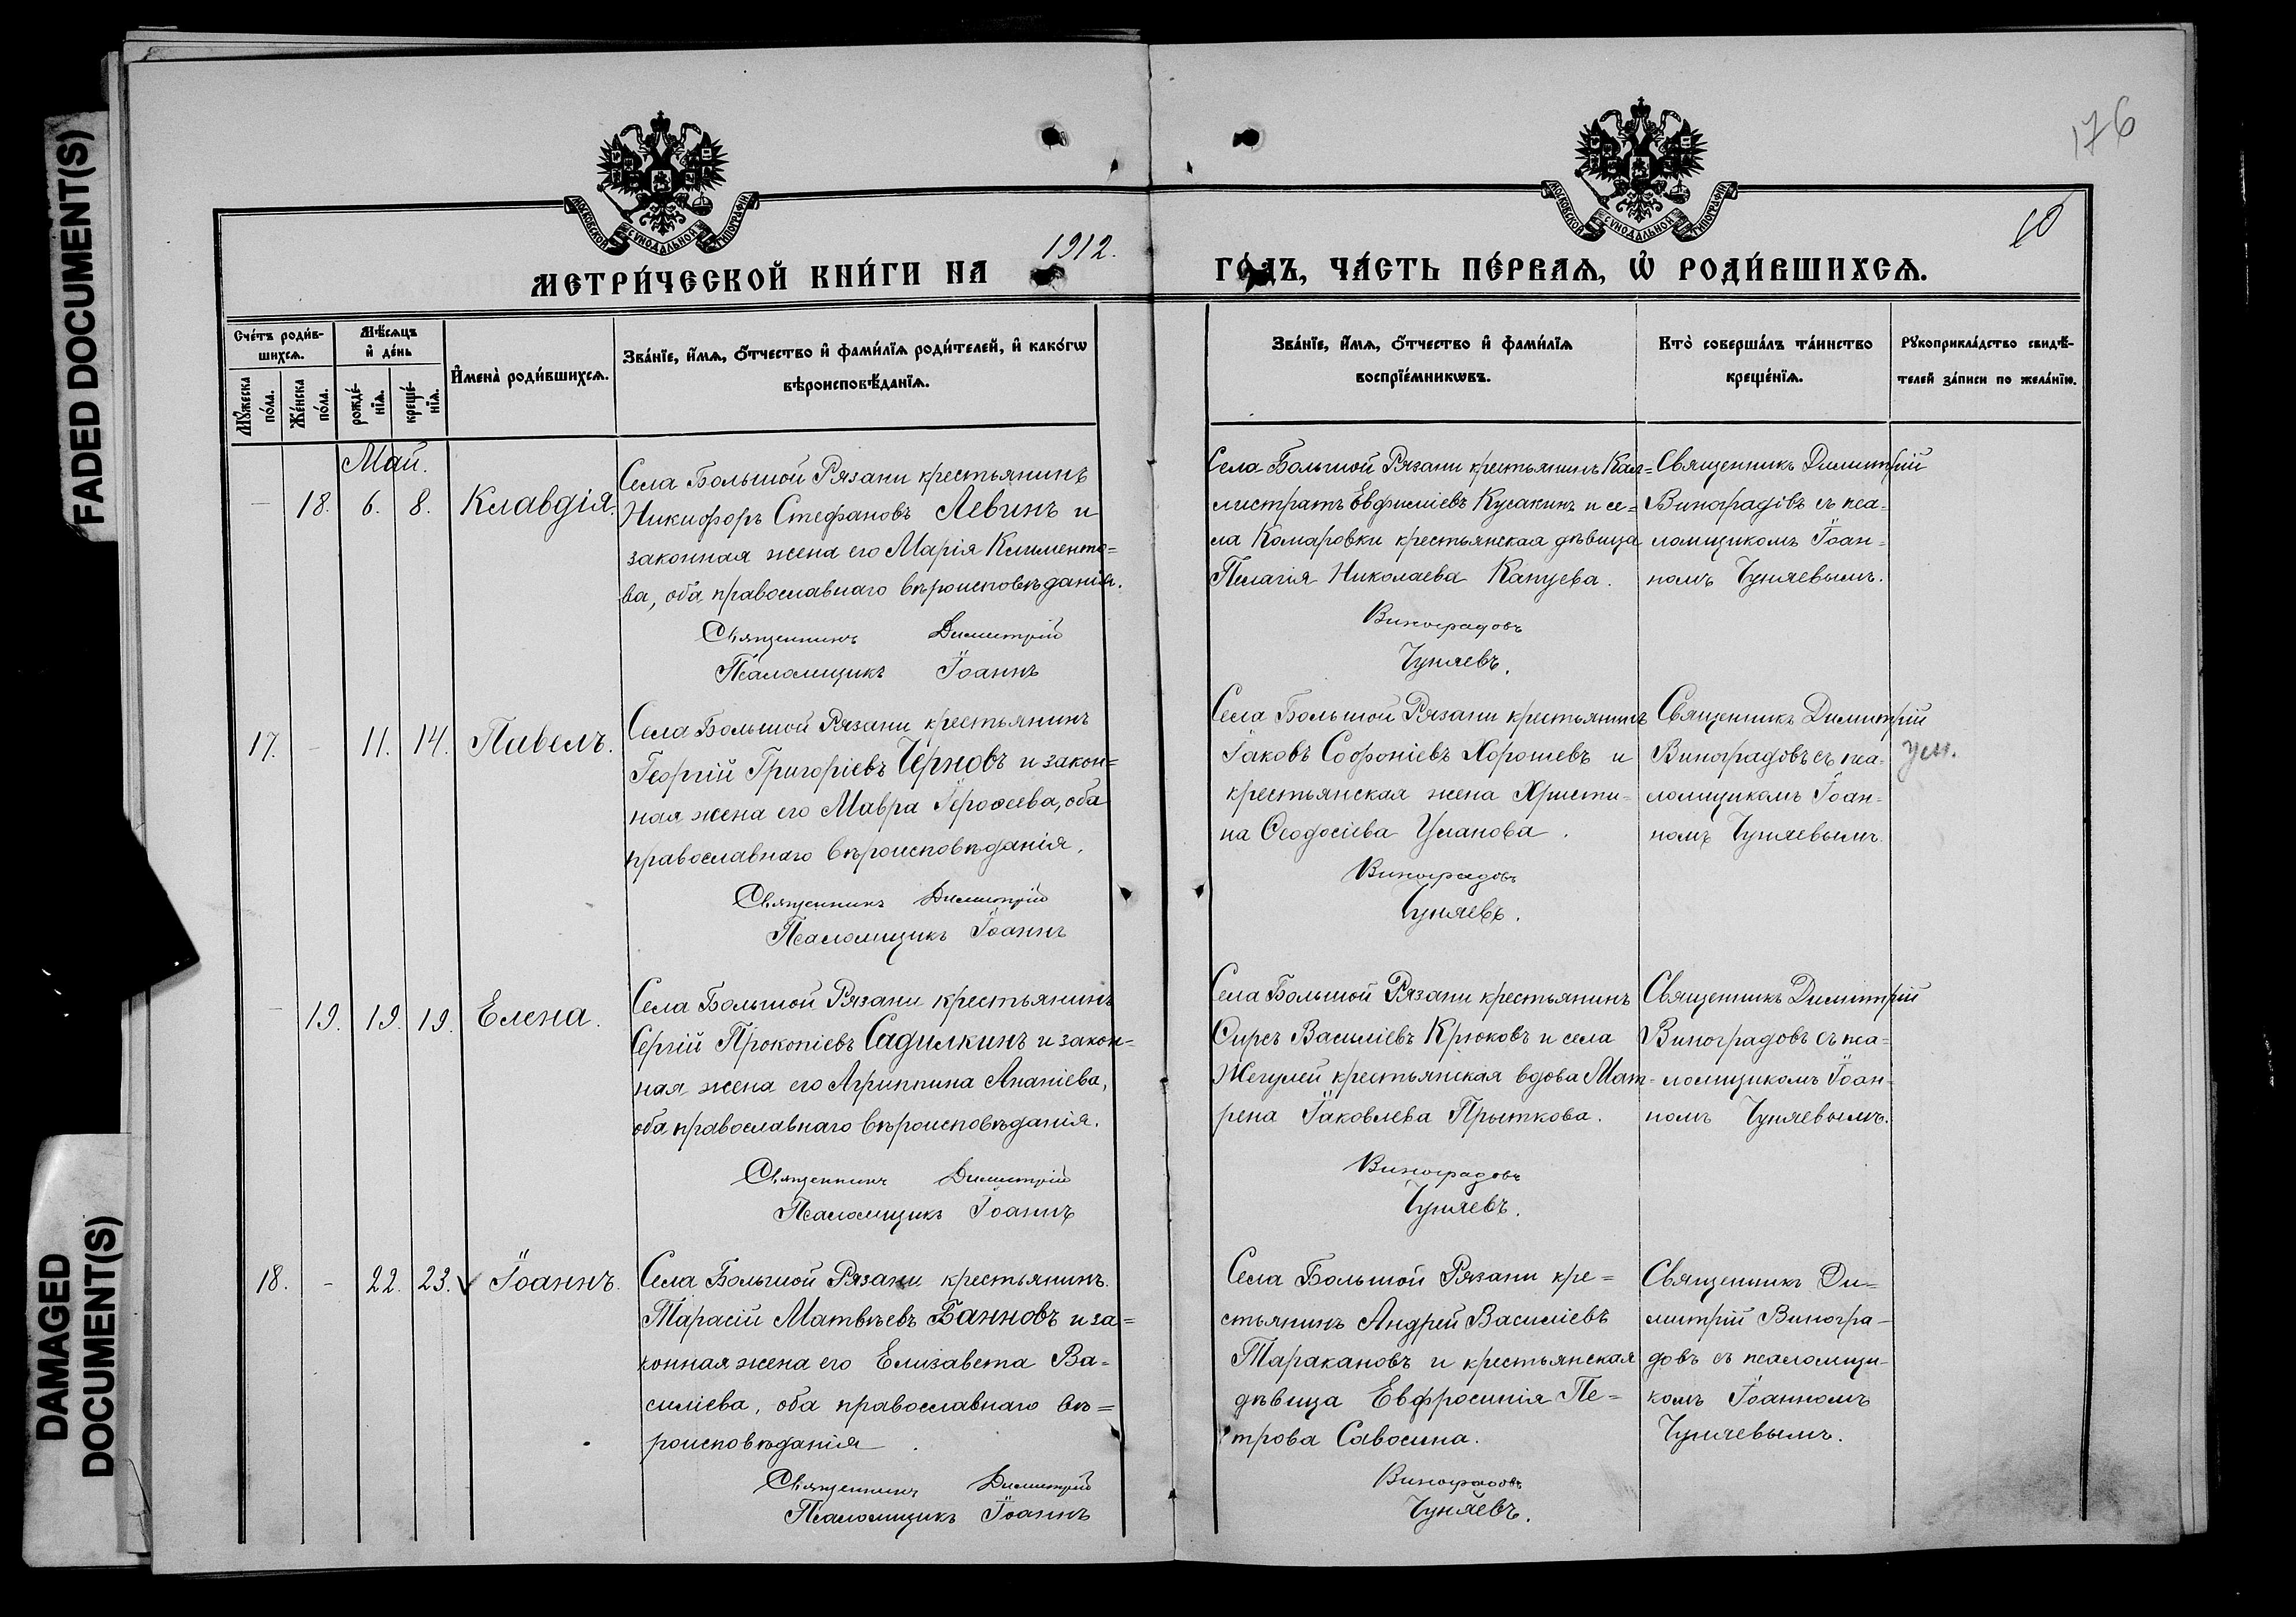 FADED DOCUMENT(S)
DAMAGED
DOCUMENT(S)
176
10
МОСКОВСКОЙ СУНОДАЛЬНОЙ ТИПОГРАФІИ
МОСКОВСКОЙ СУНОДАЛЬНОЙ ТИПОГРАФІИ
МЕТРИ́ЧЕСКОЙ КНИ́ГИ НА 1912. ГО́ДЪ, ЧА́СТЬ ПЕ́РВАѦ, Ѡ҆ РОДИ́ВШИХСѦ.
Сче́тъ роди́в-
шихсѧ.
Мꙋ́жеска
по́ла.
Же́нска
по́ла.
Мѣ́сѧцъ
и҆ де́нь
рожде́-
нїѧ.
креще́-
нїѧ.
И҆мена̀ роди́вшихсѧ.
Зва́нїе, и҆́мѧ, ѻ҆́тчество и҆ фами́лїѧ роди́телей, и҆ како́гѡ
вѣроисповѣ́данїѧ.
Зва́нїе, и҆́мѧ, ѻ҆́тчество и҆ фами́лїѧ
воспрїе́мникѡвъ.
Кто̀ соверша́лъ та́инство
креще́нїѧ.
Рꙋкоприкла́дство свидѣ́-
телей за́писи по жела́нїю.
Май.
– 18. 6. 8. Клавдія.
Села Большой Рязани крестьянинъ
Никифоръ Стефановъ Левинъ и
законная жена его Марія Климента=
ва, оба православнаго вѣроисповѣданія.
Священникъ Димитрій
Псаломщикъ Іоаннъ
Села Большой Рязани крестьянинъ Кал=
листратъ Евфиміевъ Кусакинъ и се=
ла Комаровки крестьянская дѣвица
Пелагія Николаева Капуева.
Виноградовъ
Чуняевъ.
Священникъ Димитрій
Виноградовъ съ пса-
ломщикомъ Іоан-
номъ Чуняевымъ.
17. – 11. 14. Павелъ.
Села Большой Рязани крестьянинъ
Георгій Григоріевъ Черновъ и закон=
ная жена его Мавра Іероѳеева, оба
православнаго вѣроисповѣданія.
Священникъ Димитрій
Псаломщикъ Іоаннъ
Села Большой Рязани крестьянинъ
Іаковъ Софроніевъ Хорошевъ и
крестьянская жена Христи-
на Ѳеодосіева Уланова.
Виноградовъ
Чуняевъ.
Священникъ Димитрій
Виноградовъ съ пса-
ломщикомъ Іоан-
номъ Чуняевымъ
ум.
– 19. 19. 19. Елена.
Села Большой Рязани крестьянинъ
Сергій Прокопіевъ Садилкинъ и закон=
ная жена его Агриппина Ананіева,
оба православнаго вѣроисповѣданія.
Священникъ Димитрій
Псаломщикъ Іоаннъ
Села Большой Рязани крестьянинъ
Ѳирсъ Василіевъ Крюковъ и села
Жегулей крестьянская вдова Мат-
рена Іаковлева Прыткова.
Виноградовъ
Чуняевъ.
Священникъ Димитрій
Виноградовъ съ пса=
ломщикомъ Іоан-
номъ Чуняевымъ.
18. – 22. 23. Іоаннъ.
Села Большой Рязани крестьянинъ
Тарасій Матвѣевъ Банновъ и за=
конная жена его Елизавета Ва=
силіева, оба православнаго вѣ=
роисповѣданія.
Священникъ Димитрій
Псаломщикъ Іоаннъ
Села Большой Рязани кре=
стьянинъ Андрей Василіевъ
Таракановъ и крестьянская
дѣвица Евфросинія Пе=
трова Савосина.
Виноградовъ
Чуняевъ.
Священникъ Ди=
митрій Виногра-
довъ съ псаломщи-
комъ Іоанномъ
Чуняевымъ.